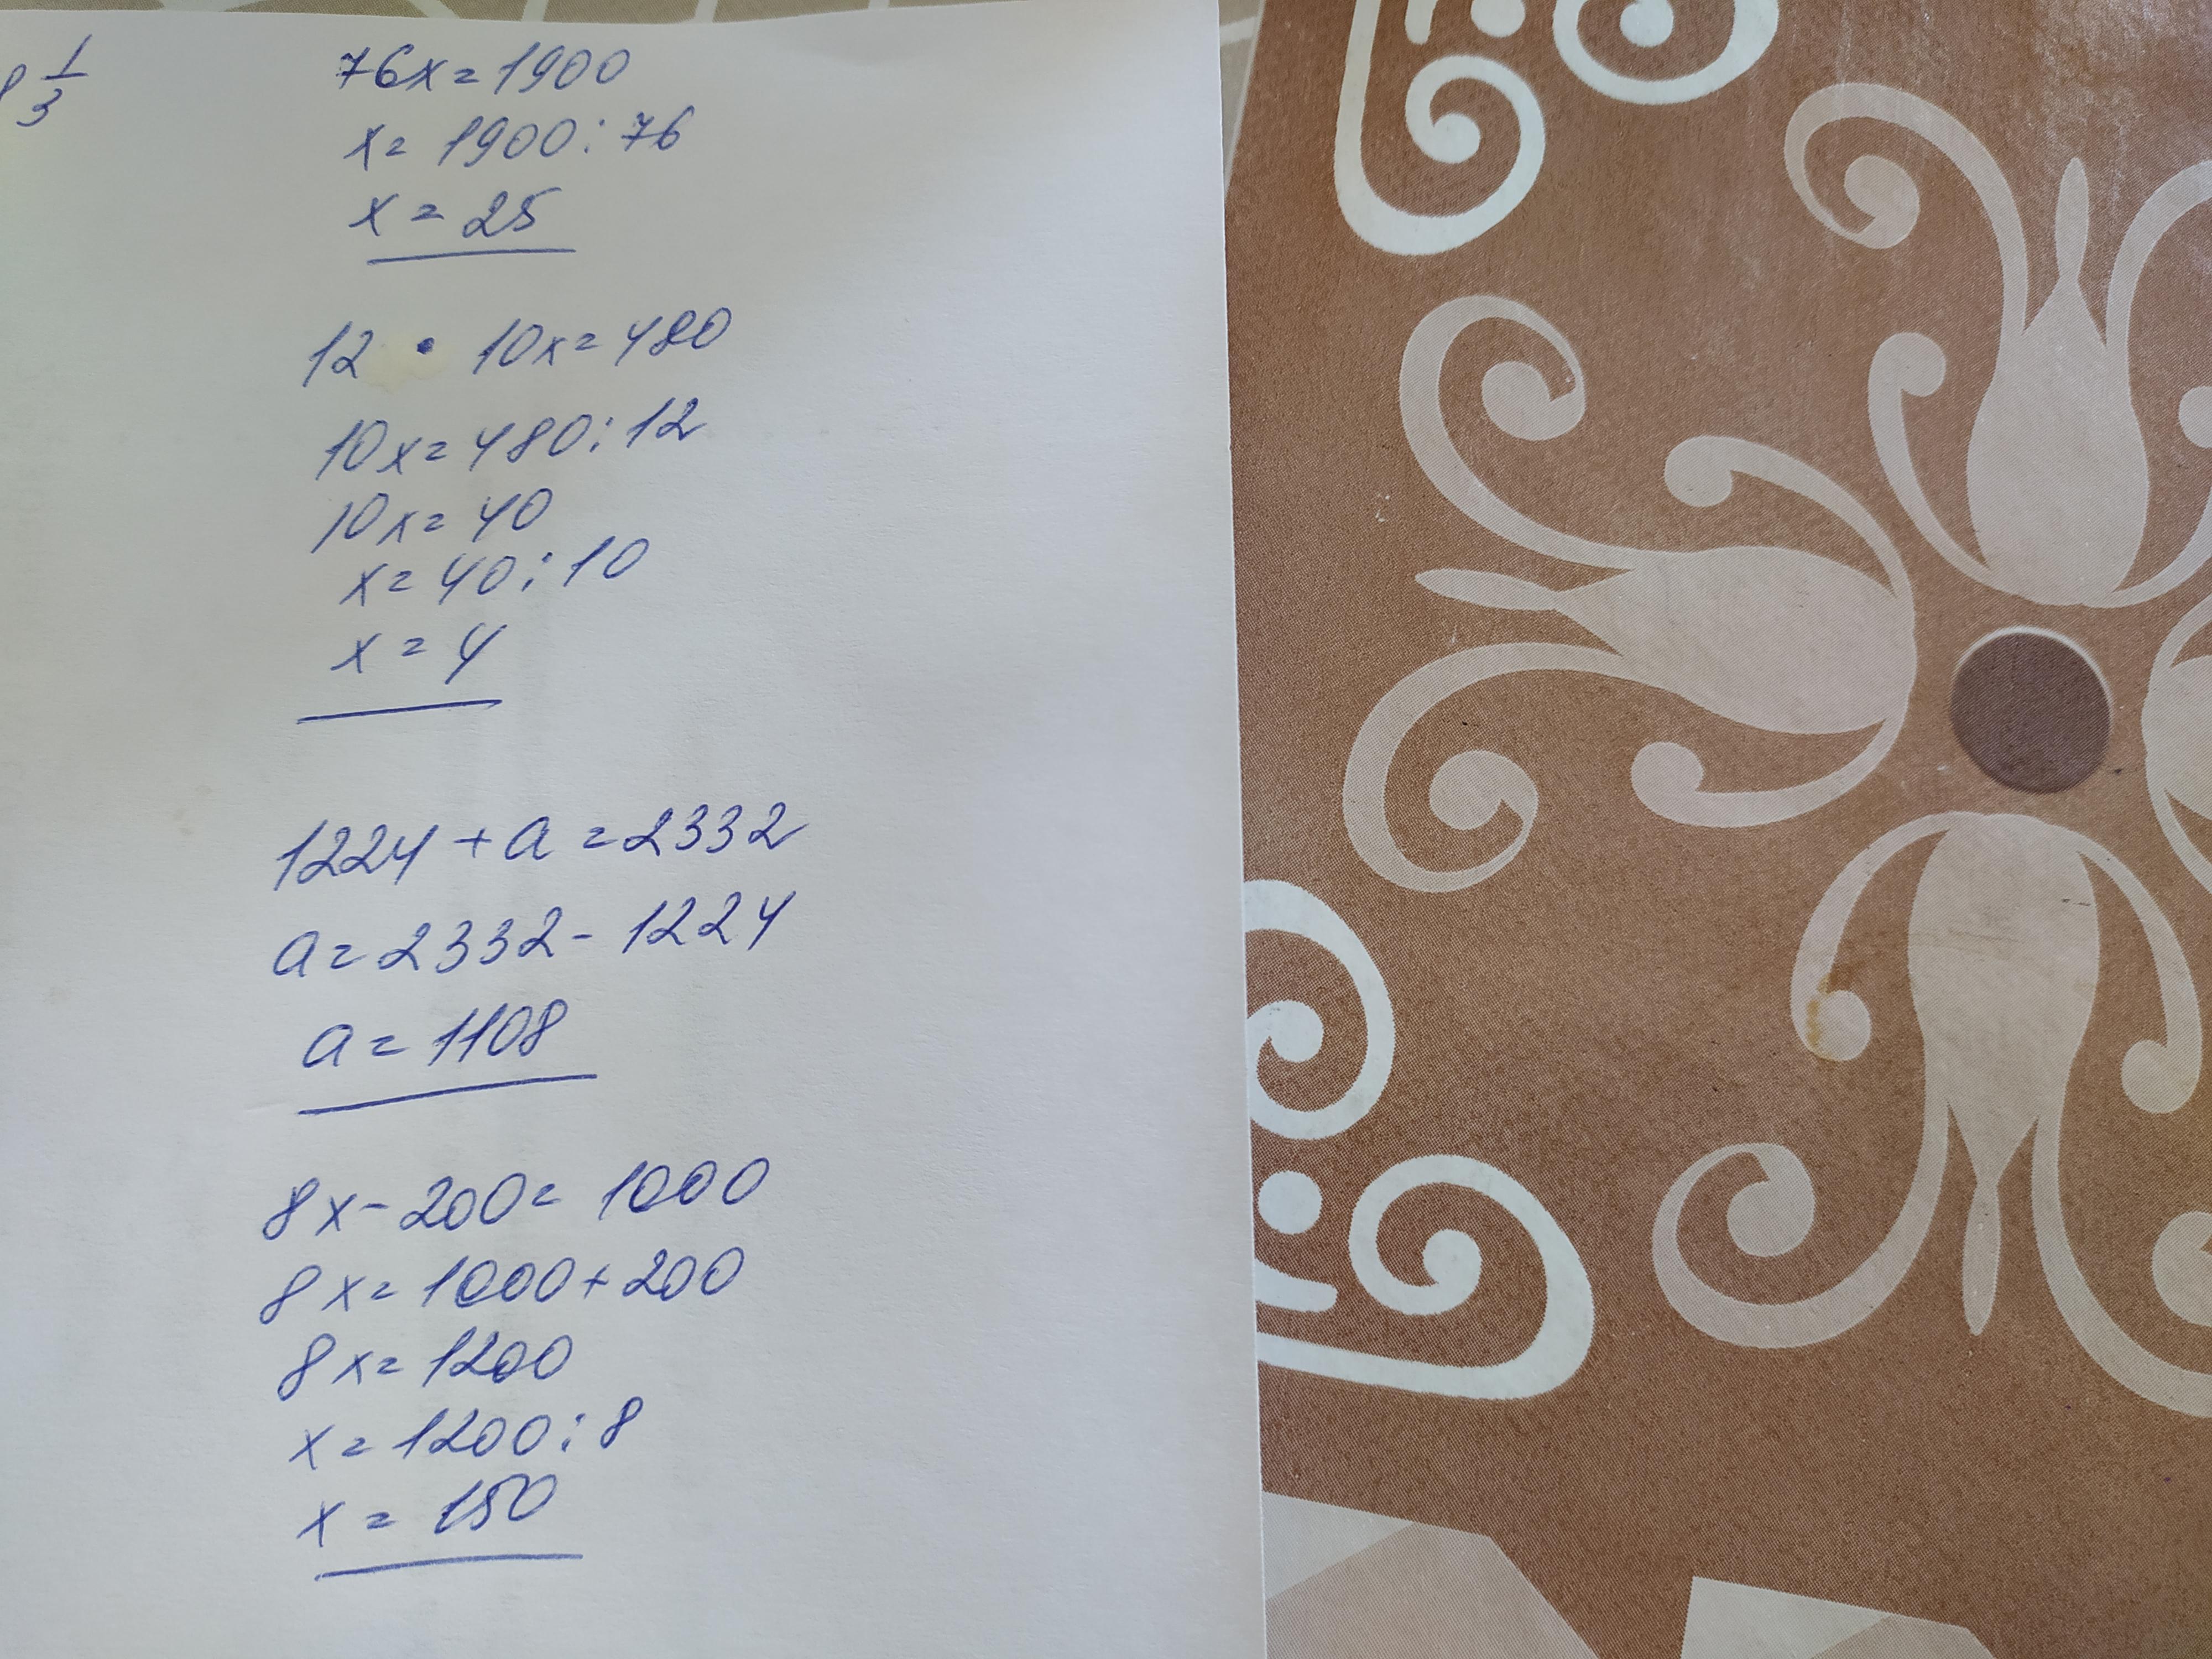 1/3
76x=1900
x=1900:76
x=25
12 · 10x=480
10x=480:12
10x=40
x=40:10
x=4
1224+a=2332
a=2332-1224
a=1108
8x-200=1000
8x=1000+200
8x=1200
x=1200:8
x=150